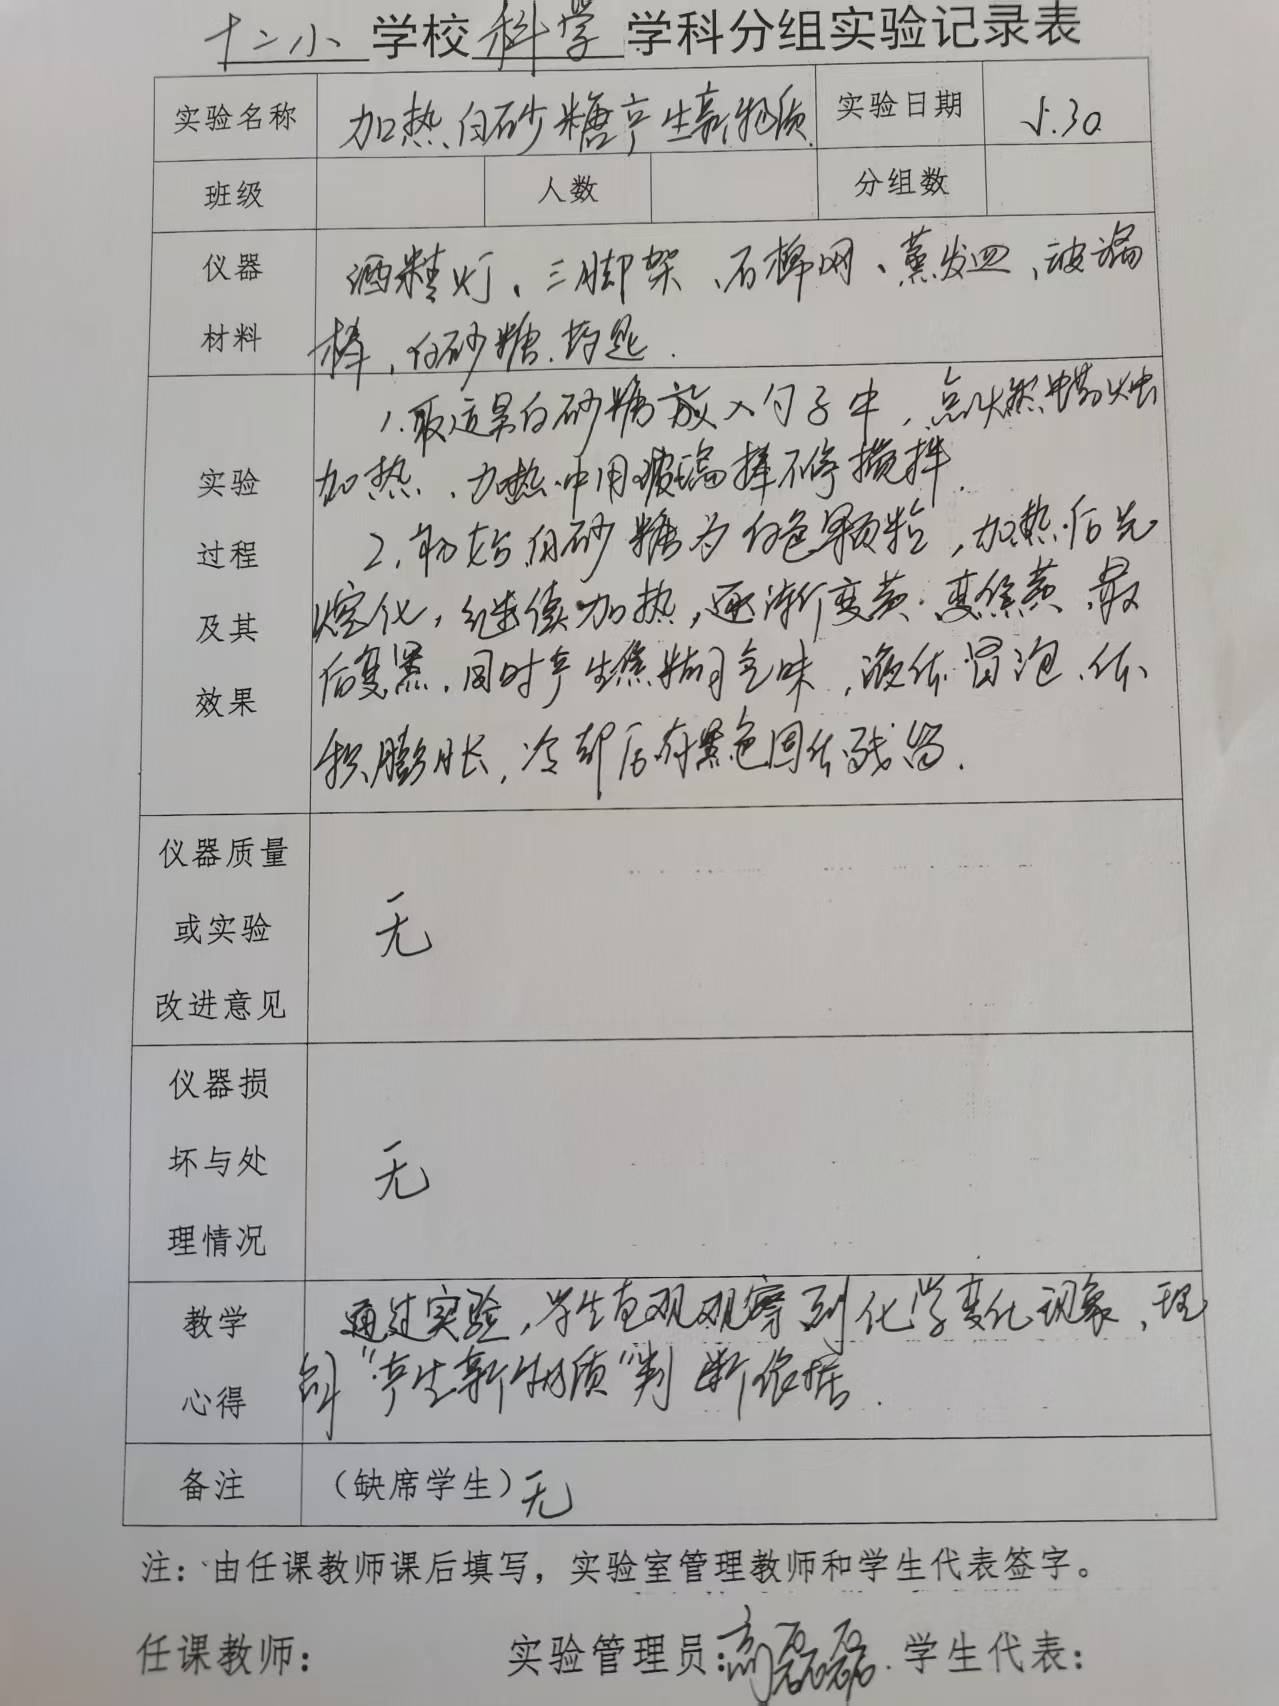 十二小学校科学学科分组实验记录表
实验名称 加热白砂糖产生新物质 实验日期 5.30
班级 人数 分组数
仪器材料
酒精灯、三脚架、石棉网、蒸发皿、玻璃
棒、白砂糖、药匙.
实验过程及其效果
1.取适量白砂糖放入勺子中,点燃蜡烛
加热、加热中用玻璃棒不停搅拌.
2.初始白砂糖为白色颗粒,加热后先
熔化,继续加热,逐渐变黄、变焦黄、最
后变黑.同时产生焦糊气味,液体冒泡、体
积膨胀,冷却后有黑色固体残留.
仪器质量或实验改进意见
无
仪器损坏与处理情况
无
教学心得
通过实验,学生直观观察到化学变化现象、理
解“产生新物质”判断依据.
备注 (缺席学生)无
注:由任课教师课后填写,实验室管理教师和学生代表签字。
任课教师: 实验管理员:高磊磊 学生代表: